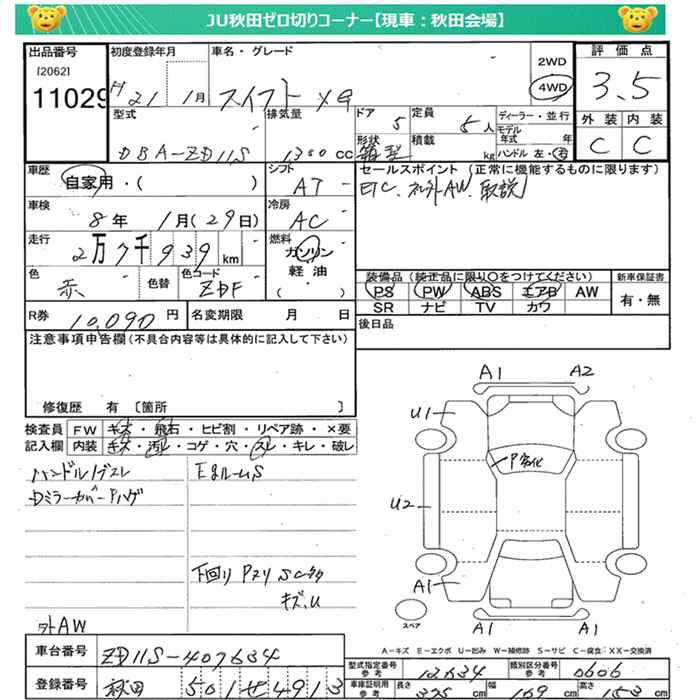 JU秋田ゼロ切りコーナー【現車：秋田会場】
出品番号 初度登録年月 車名・グレード 評価点
[2062] 2WD
11029 H 21 1月 スイフト XG 4WD 3.5
型式 排気量 ドア 定員 ディーラー・並行 外装 内装
5 5人 モデル年式 年 C C
DBA-ZD11S 1300cc 形状 箱型 積載 kg ハンドル 左・右
車歴 シフト セールスポイント (正常に機能するものに限ります)
自家用・( ) AT ETC. 社外AW. 取説
車検 冷房
8年 1月(29日) AC
走行 燃料
2万7千939km ガソリン
色 色コード 軽油 装備品(純正品に限り○をつけてください) 新車保証書
赤 色替 ZDF ( ) PS PW ABS エアB AW 有・無
SR ナビ TV カワ
R券 10,090円 名変期限 月 日 後日品
注意事項申告欄(不具合内容等は具体的に記入して下さい)
修復歴 有 〔箇所 〕
検査員 FW キズ・飛石・ヒビ割・リペア跡・×要
記入欄 内装 キズ・汚れ・コゲ・穴・スレ・キレ・破レ
ハンドルノブスレ
DミラーカバーPハゲ
下回り Pヌリ SC多
キズ.U
外AW
A1 A2
U1
P劣化
U2
A1
A1 A1
スペア
A-キズ E-エクボ U-凹み W-補修跡 S-サビ C-腐食:XX-交換済
車台番号 ZD11S-407634
型式指定番号 参考 12634 類別区分番号 参考 0606
登録番号 秋田 501せ4913
車庫証明用 参考 長さ 375cm 幅 169cm 高さ 153cm